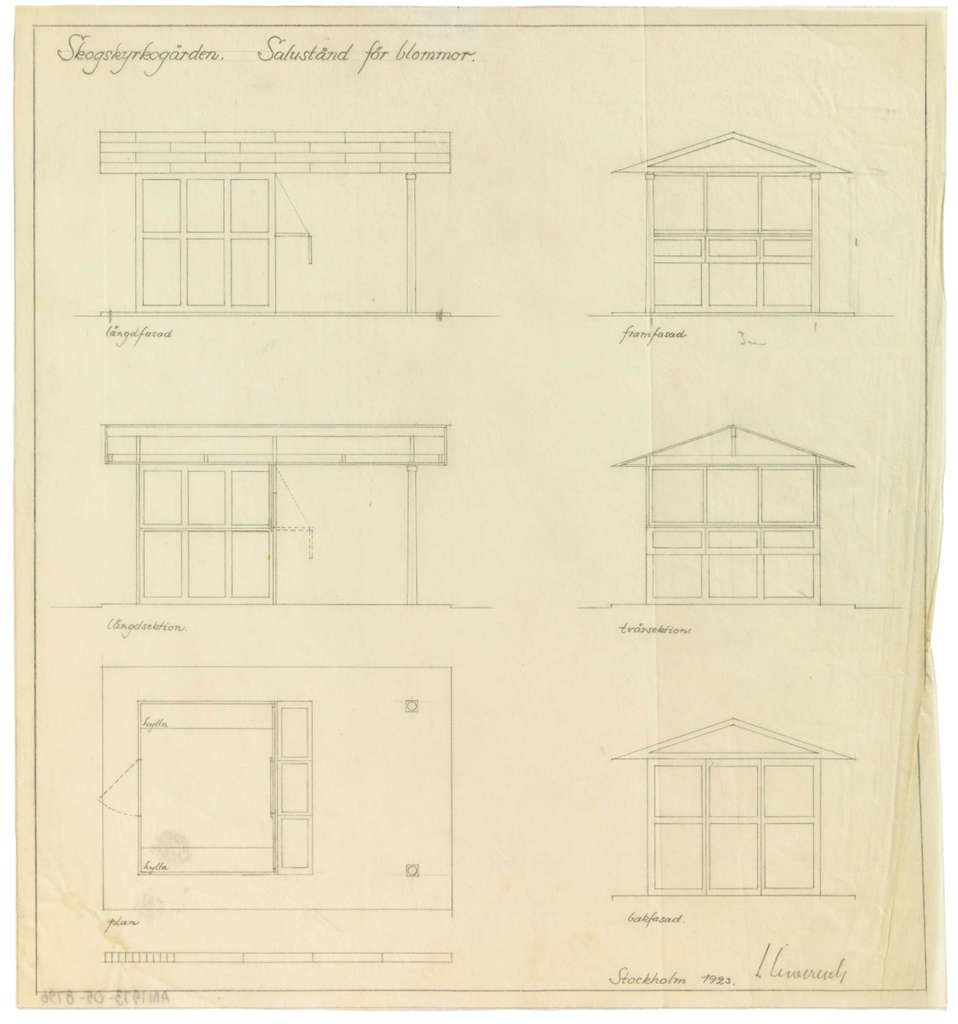 Skogskyrkogården. Salustånd för blommor.
långdfasad
framfasad
längdsektion.
tvärsektion.
hylla
hylla
plan
bakfasad.
Stockholm 1923.
AM 1973-05-8796